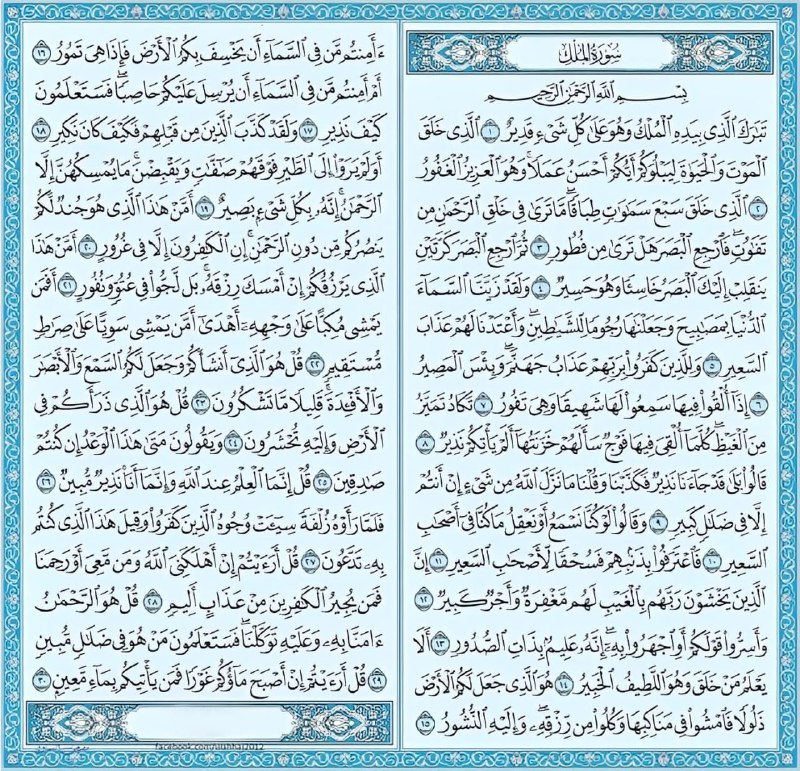 سُورَةُ المُلْكِ
بِسْمِ اللَّهِ الرَّحْمَٰنِ الرَّحِيمِ
تَبَٰرَكَ ٱلَّذِى بِيَدِهِ ٱلْمُلْكُ وَهُوَ عَلَىٰ كُلِّ شَىْءٍ قَدِيرٌ ١ ٱلَّذِى خَلَقَ
ٱلْمَوْتَ وَٱلْحَيَوٰةَ لِيَبْلُوَكُمْ أَيُّكُمْ أَحْسَنُ عَمَلًا ۚ وَهُوَ ٱلْعَزِيزُ ٱلْغَفُورُ
٢ ٱلَّذِى خَلَقَ سَبْعَ سَمَٰوَٰتٍ طِبَاقًا ۖ مَّا تَرَىٰ فِى خَلْقِ ٱلرَّحْمَٰنِ مِن
تَفَٰوُتٍ ۖ فَٱرْجِعِ ٱلْبَصَرَ هَلْ تَرَىٰ مِن فُطُورٍ ٣ ثُمَّ ٱرْجِعِ ٱلْبَصَرَ كَرَّتَيْنِ
يَنقَلِبْ إِلَيْكَ ٱلْبَصَرُ خَاسِئًا وَهُوَ حَسِيرٌ ٤ وَلَقَدْ زَيَّنَّا ٱلسَّمَآءَ
ٱلدُّنْيَا بِمَصَٰبِيحَ وَجَعَلْنَٰهَا رُجُومًا لِّلشَّيَٰطِينِ ۖ وَأَعْتَدْنَا لَهُمْ عَذَابَ
ٱلسَّعِيرِ ٥ وَلِلَّذِينَ كَفَرُوا۟ بِرَبِّهِمْ عَذَابُ جَهَنَّمَ ۖ وَبِئْسَ ٱلْمَصِيرُ
٦ إِذَآ أُلْقُوا۟ فِيهَا سَمِعُوا۟ لَهَا شَهِيقًا وَهِىَ تَفُورُ ٧ تَكَادُ تَمَيَّزُ
مِنَ ٱلْغَيْظِ ۖ كُلَّمَآ أُلْقِىَ فِيهَا فَوْجٌ سَأَلَهُمْ خَزَنَتُهَآ أَلَمْ يَأْتِكُمْ نَذِيرٌ ٨
قَالُوا۟ بَلَىٰ قَدْ جَآءَنَا نَذِيرٌ فَكَذَّبْنَا وَقُلْنَا مَا نَزَّلَ ٱللَّهُ مِن شَىْءٍ إِنْ أَنتُمْ
إِلَّا فِى ضَلَٰلٍ كَبِيرٍ ٩ وَقَالُوا۟ لَوْ كُنَّا نَسْمَعُ أَوْ نَعْقِلُ مَا كُنَّا فِىٓ أَصْحَٰبِ
ٱلسَّعِيرِ ١٠ فَٱعْتَرَفُوا۟ بِذَنۢبِهِمْ فَسُحْقًا لِّأَصْحَٰبِ ٱلسَّعِيرِ ١١ إِنَّ
ٱلَّذِينَ يَخْشَوْنَ رَبَّهُم بِٱلْغَيْبِ لَهُم مَّغْفِرَةٌ وَأَجْرٌ كَبِيرٌ ١٢
وَأَسِرُّوا۟ قَوْلَكُمْ أَوِ ٱجْهَرُوا۟ بِهِۦٓ ۖ إِنَّهُۥ عَلِيمٌۢ بِذَاتِ ٱلصُّدُورِ ١٣ أَلَا
يَعْلَمُ مَنْ خَلَقَ وَهُوَ ٱللَّطِيفُ ٱلْخَبِيرُ ١٤ هُوَ ٱلَّذِى جَعَلَ لَكُمُ ٱلْأَرْضَ
ذَلُولًا فَٱمْشُوا۟ فِى مَنَاكِبِهَا وَكُلُوا۟ مِن رِّزْقِهِۦ ۖ وَإِلَيْهِ ٱلنُّشُورُ ١٥
ءَأَمِنتُم مَّن فِى ٱلسَّمَآءِ أَن يَخْسِفَ بِكُمُ ٱلْأَرْضَ فَإِذَا هِىَ تَمُورُ ١٦
أَمْ أَمِنتُم مَّن فِى ٱلسَّمَآءِ أَن يُرْسِلَ عَلَيْكُمْ حَاصِبًا ۖ فَسَتَعْلَمُونَ
كَيْفَ نَذِيرِ ١٧ وَلَقَدْ كَذَّبَ ٱلَّذِينَ مِن قَبْلِهِمْ فَكَيْفَ كَانَ نَكِيرِ ١٨
أَوَلَمْ يَرَوْا۟ إِلَى ٱلطَّيْرِ فَوْقَهُمْ صَٰٓفَّٰتٍ وَيَقْبِضْنَ ۚ مَا يُمْسِكُهُنَّ إِلَّا
ٱلرَّحْمَٰنُ ۚ إِنَّهُۥ بِكُلِّ شَىْءٍۭ بَصِيرٌ ١٩ أَمَّنْ هَٰذَا ٱلَّذِى هُوَ جُندٌ لَّكُمْ
يَنصُرُكُم مِّن دُونِ ٱلرَّحْمَٰنِ ۚ إِنِ ٱلْكَٰفِرُونَ إِلَّا فِى غُرُورٍ ٢٠ أَمَّنْ هَٰذَا
ٱلَّذِى يَرْزُقُكُمْ إِنْ أَمْسَكَ رِزْقَهُۥ ۚ بَل لَّجُّوا۟ فِى عُتُوٍّ وَنُفُورٍ ٢١ أَفَمَن
يَمْشِى مُكِبًّا عَلَىٰ وَجْهِهِۦٓ أَهْدَىٰٓ أَمَّن يَمْشِى سَوِيًّا عَلَىٰ صِرَٰطٍ
مُّسْتَقِيمٍ ٢٢ قُلْ هُوَ ٱلَّذِىٓ أَنشَأَكُمْ وَجَعَلَ لَكُمُ ٱلسَّمْعَ وَٱلْأَبْصَٰرَ
وَٱلْأَفْـِٔدَةَ ۖ قَلِيلًا مَّا تَشْكُرُونَ ٢٣ قُلْ هُوَ ٱلَّذِى ذَرَأَكُمْ فِى
ٱلْأَرْضِ وَإِلَيْهِ تُحْشَرُونَ ٢٤ وَيَقُولُونَ مَتَىٰ هَٰذَا ٱلْوَعْدُ إِن كُنتُمْ
صَٰدِقِينَ ٢٥ قُلْ إِنَّمَا ٱلْعِلْمُ عِندَ ٱللَّهِ وَإِنَّمَآ أَنَا۠ نَذِيرٌ مُّبِينٌ ٢٦
فَلَمَّا رَأَوْهُ زُلْفَةً سِيٓـَٔتْ وُجُوهُ ٱلَّذِينَ كَفَرُوا۟ وَقِيلَ هَٰذَا ٱلَّذِى كُنتُم
بِهِۦ تَدَّعُونَ ٢٧ قُلْ أَرَءَيْتُمْ إِنْ أَهْلَكَنِىَ ٱللَّهُ وَمَن مَّعِىَ أَوْ رَحِمَنَا
فَمَن يُجِيرُ ٱلْكَٰفِرِينَ مِنْ عَذَابٍ أَلِيمٍ ٢٨ قُلْ هُوَ ٱلرَّحْمَٰنُ
ءَامَنَّا بِهِۦ وَعَلَيْهِ تَوَكَّلْنَا ۖ فَسَتَعْلَمُونَ مَنْ هُوَ فِى ضَلَٰلٍ مُّبِينٍ
٢٩ قُلْ أَرَءَيْتُمْ إِنْ أَصْبَحَ مَآؤُكُمْ غَوْرًا فَمَن يَأْتِيكُم بِمَآءٍ مَّعِينٍۭ ٣٠